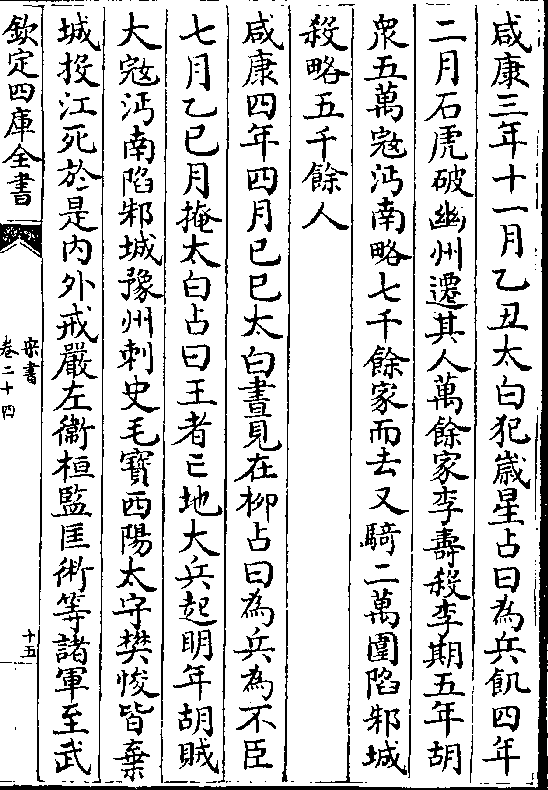 咸康三年十一月乙丑太白犯嵗星占曰為兵飢四年
二月石虎破幽州遷其人萬餘家李壽殺李期五年胡
衆五萬宼沔南略七千餘家而去又騎二萬圍陷邾城
殺略五千餘人
咸康四年四月己巳太白晝見在柳占曰為兵為不臣
七月乙巳月掩太白占曰王者亡地大兵起明年胡賊
大宼沔南陷邾城豫州刺史毛寶西陽太守樊悛皆棄
城投江死於是内外戒嚴左衞桓監匡術等諸軍至武
欽定四庫全書
宋書
卷二十四
十五